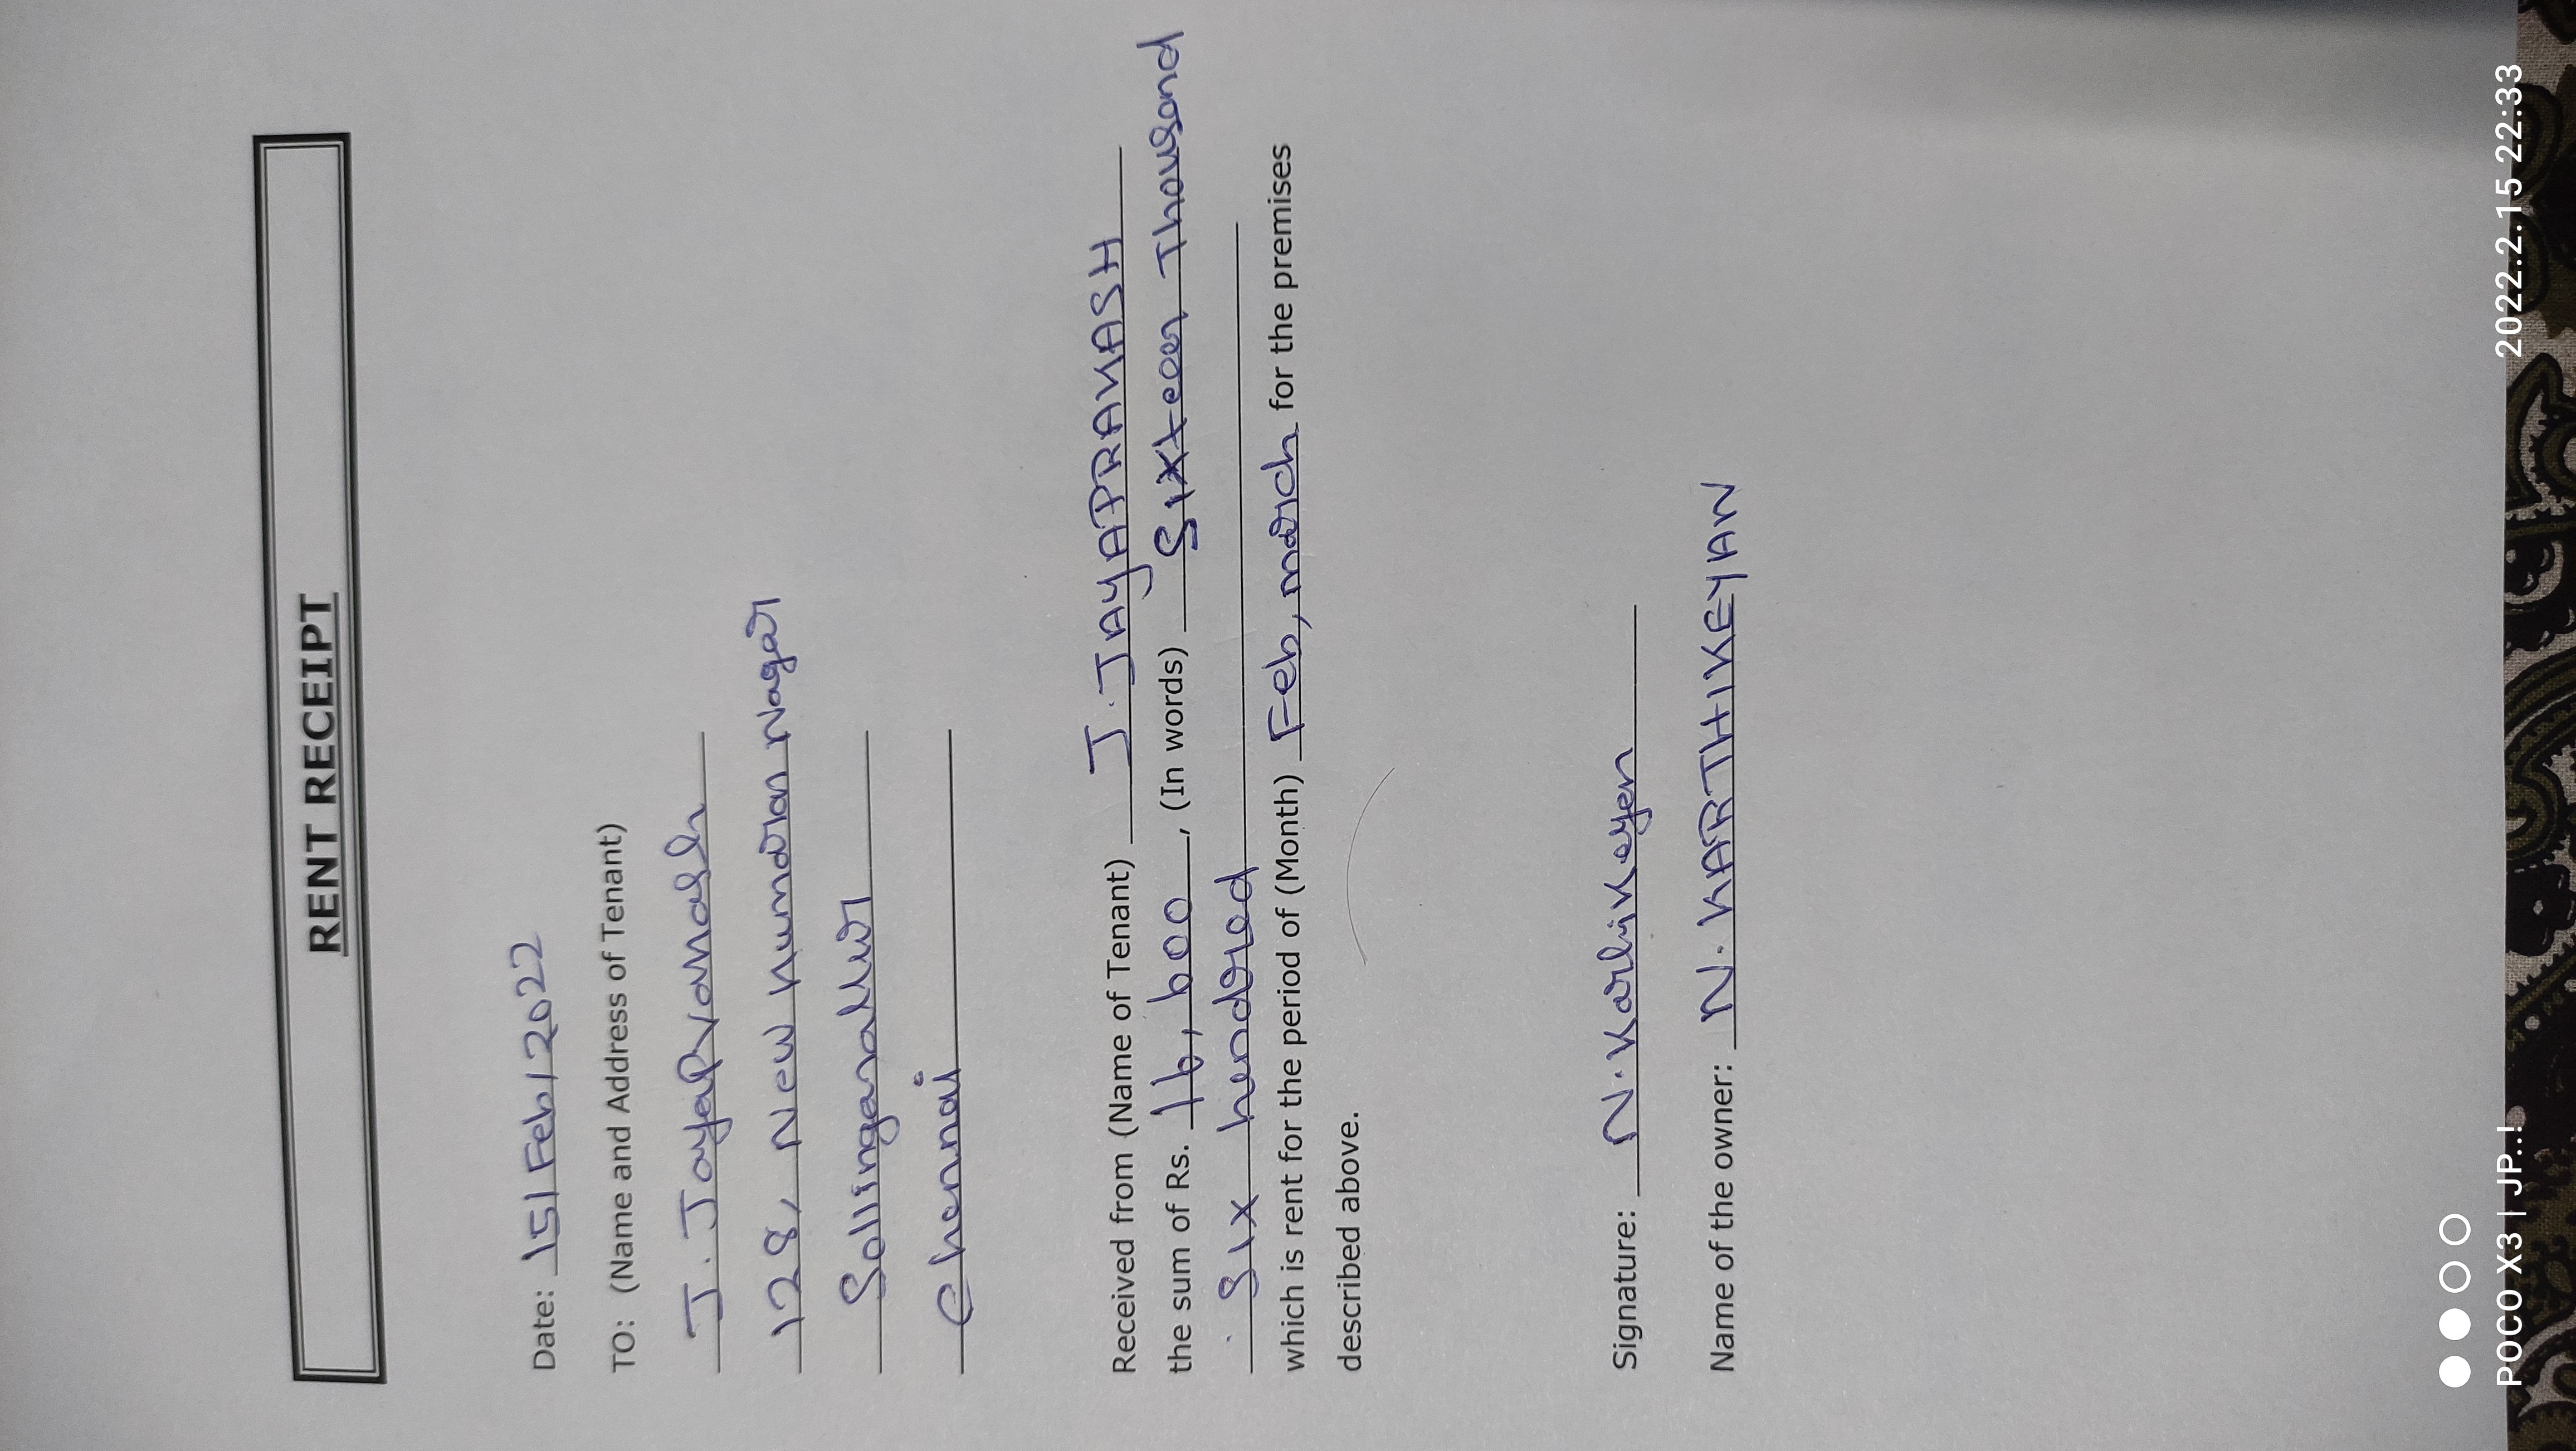 RENT RECEIPT
Date: 15/Feb/2022
TO: (Name and Address of Tenant)
J. JayaPrakash
128, New Kumaran Nagar
Sollinganallur
Chennai
Received from (Name of Tenant) J. JAYAPRAKASH
the sum of Rs. 16,600, (In words) Sixteen Thousand
Six hendred
which is rent for the period of (Month) Feb, march for the premises
described above.
Signature: N. Karthikeyen
Name of the owner: N. KARTHIKEYAN
POCO X3 | JP..! 2022.2.15 22:33